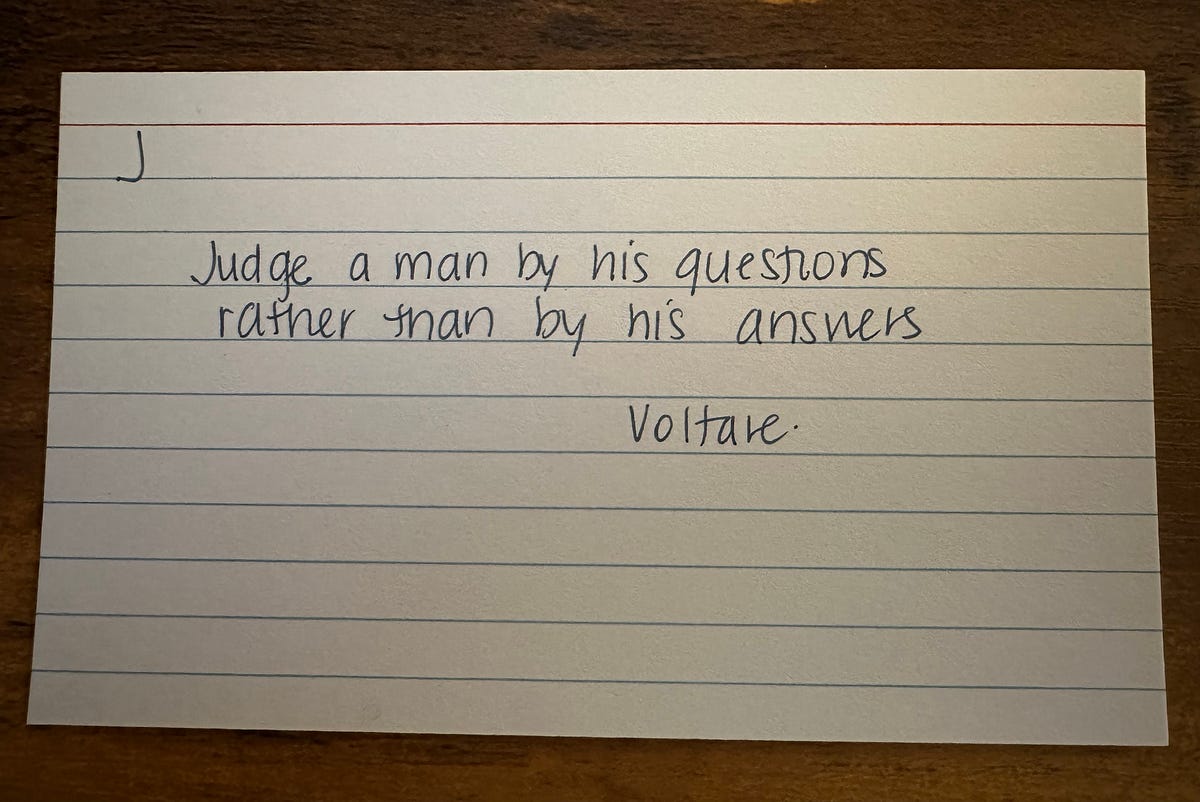 J
Judge a man by his questions
rather than by his answers
Voltare.